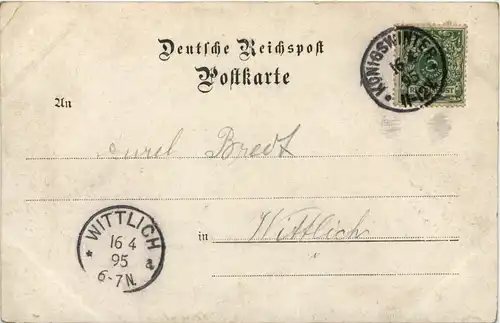 Deutsche Reichspost
Postkarte
KÖNIGSWINTER
16 4
95
11-12V.
An
Aurel Bredt
in Wittlich
* WITTLICH a
16 4
95
6-7N.